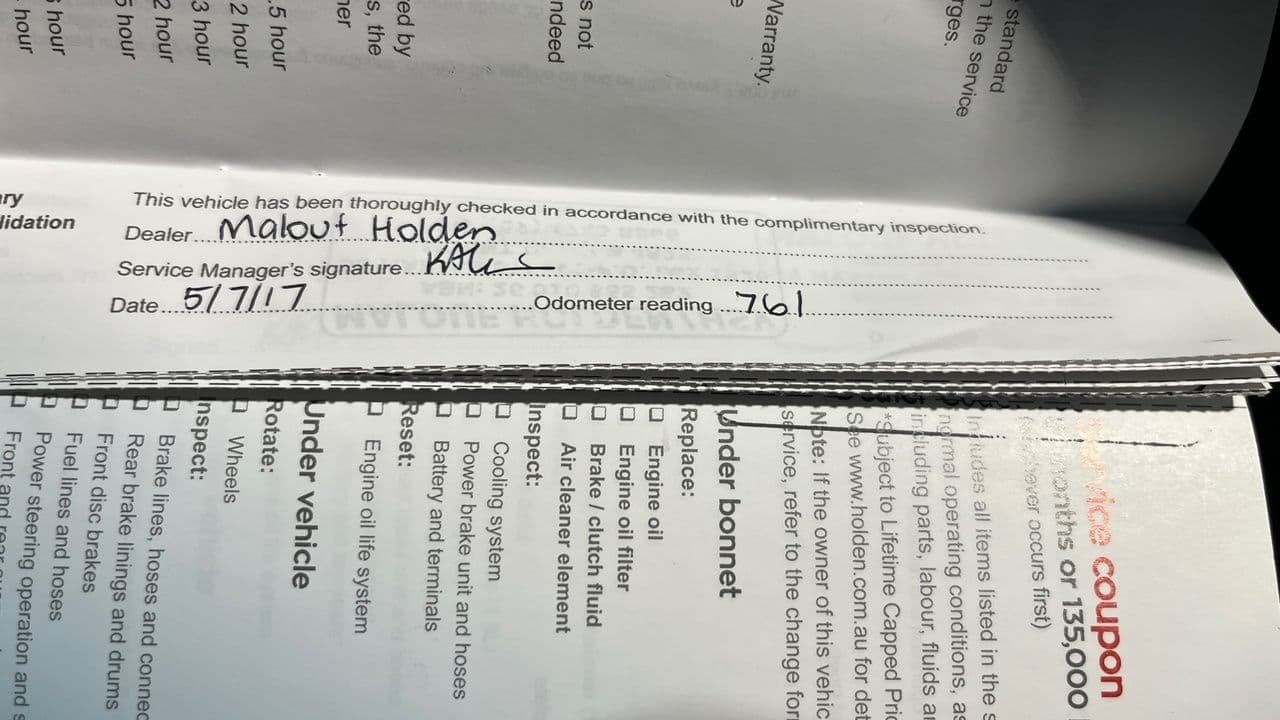 standard
the service
rges.
Warranty.
e
s not
ndeed
red by
s, the
ner
.5 hour
2 hour
3 hour
2 hour
5 hour
hour
hour
ary
lidation
This vehicle has been thoroughly checked in accordance with the complimentary inspection.
Dealer Malouf Holden
Service Manager's signature
Date 5/7/17 Odometer reading 761
service coupon
months or 135,000
occurs first)
Includes all items listed in the s
normal operating conditions, as
including parts, labour, fluids a
*Subject to Lifetime Capped Pric
See www.holden.com.au for det
Note: If the owner of this vehic
service, refer to the change for
Under bonnet
Replace:
☐ Engine oil
☐ Engine oil filter
☐ Brake / clutch fluid
☐ Air cleaner element
Inspect:
☐ Cooling system
☐ Power brake unit and hoses
☐ Battery and terminals
Reset:
☐ Engine oil life system
Under vehicle
Rotate:
☐ Wheels
Inspect:
☐ Brake lines, hoses and connec
☐ Rear brake linings and drums
☐ Front disc brakes
☐ Fuel lines and hoses
☐ Power steering operation and s
☐ Front and rear